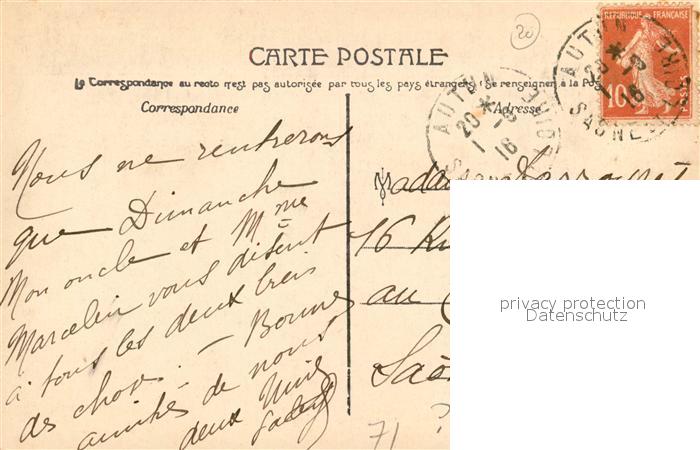 20
CARTE POSTALE
La Correspondance au recto n'est pas autorisée par tous les pays étrangers (Se renseigner à la Pos
Correspondance
Adresse
RÉPUBLIQUE FRANÇAISE
10
POSTES
AUTUN
20 -9
16
SAONE-ET-LOIRE
AUTUN
20 -9
16
SAONE LOIRE
Nous ne rentrerons
que Dimanche
Mon oncle et Mme
Marcelin vous disent
à tous les deux
des choses. — Bonnes
amitiés de nous
deux
Madame
16 Ru
au
Saô
71 ?
privacy protection
Datenschutz